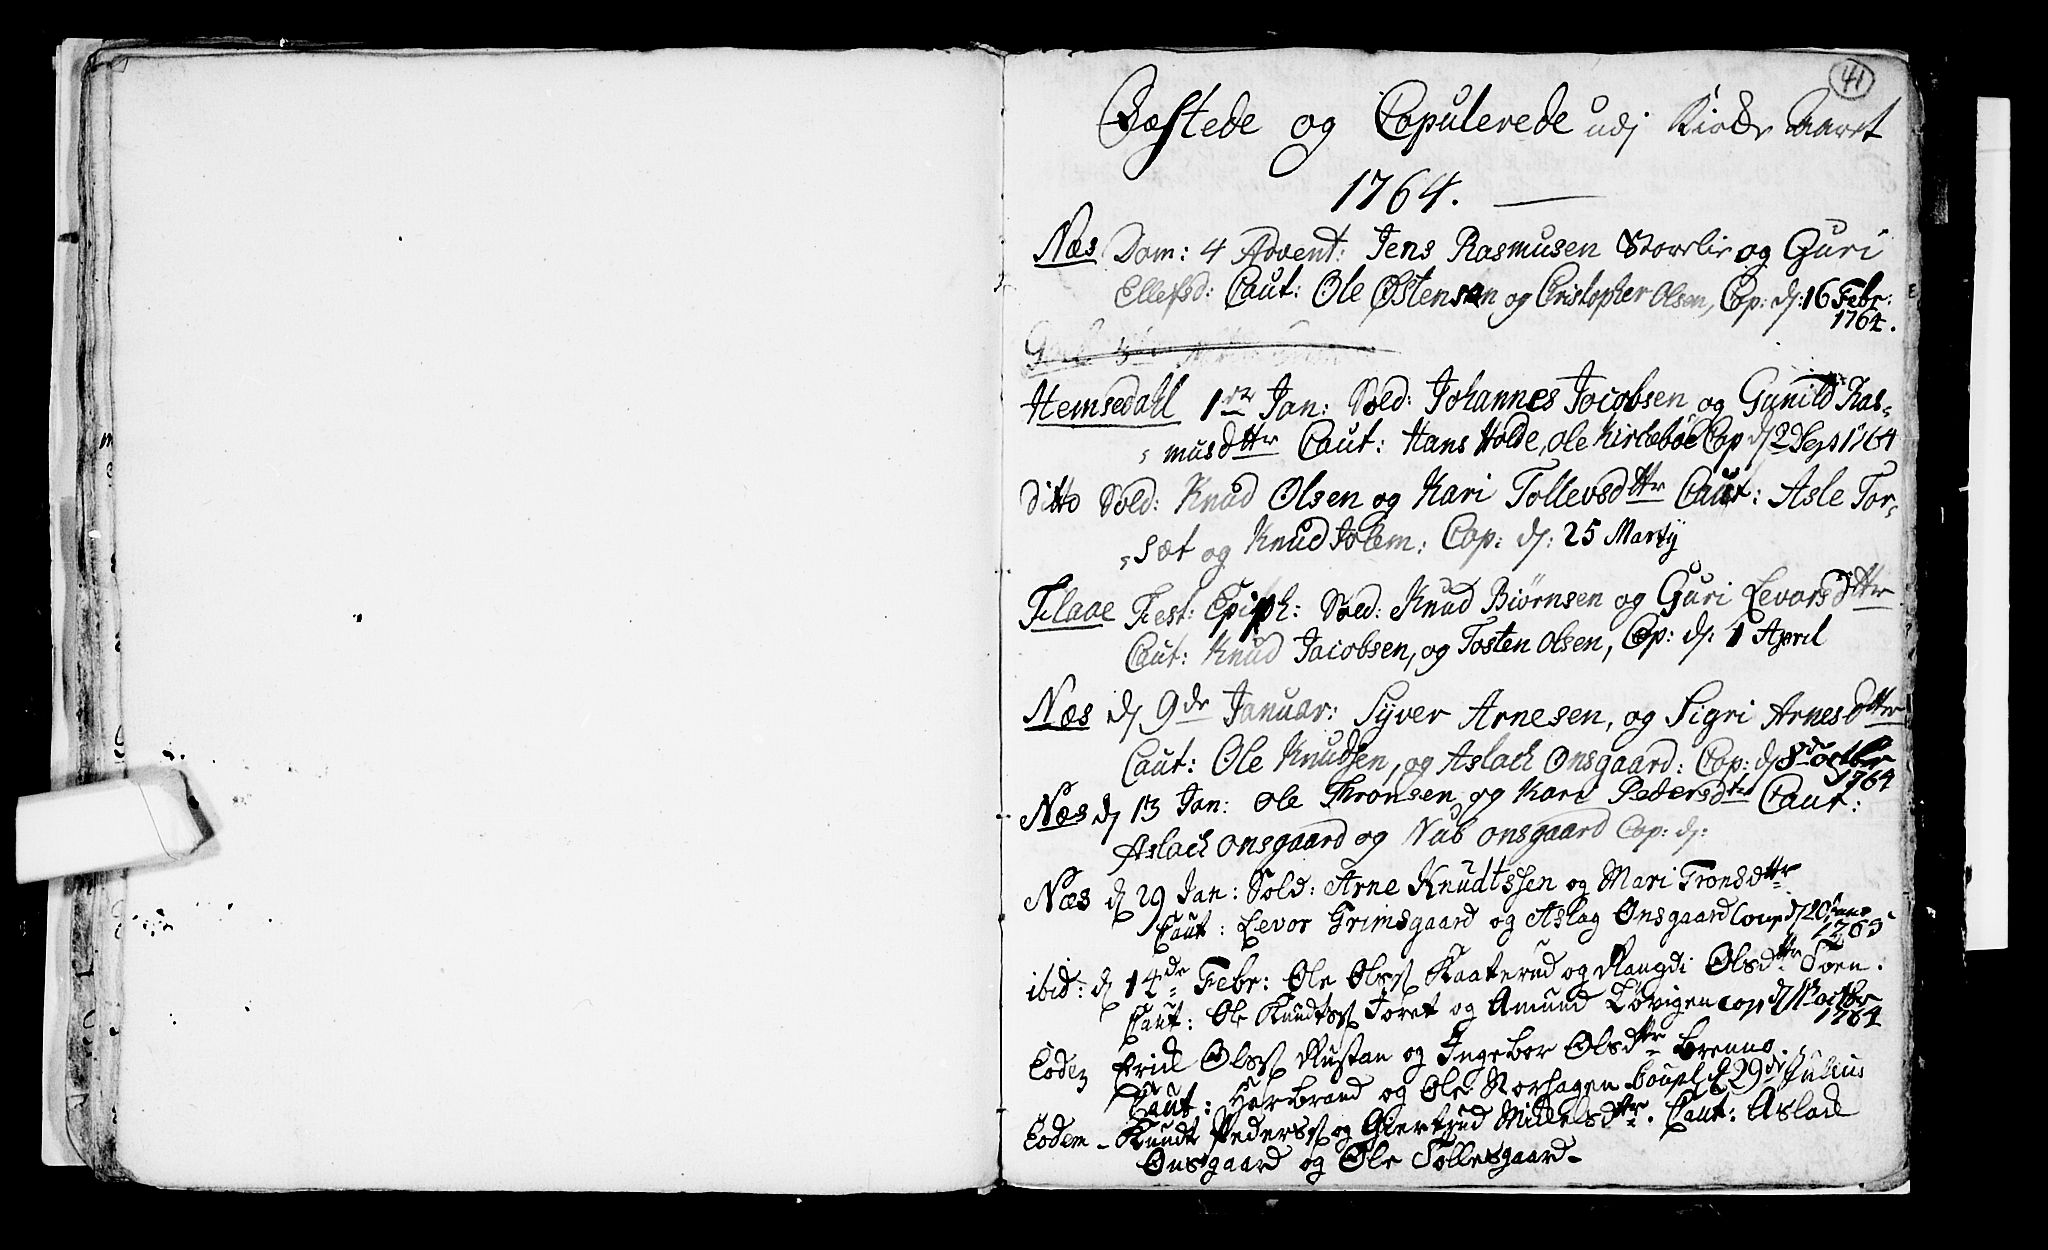 41
Fæstede og Copulerede udj Kirke Aaret
1764.
Næs Dom: 4 Advent: Jens Rasmusen Storelie og Guri
Ellefsd: Caut: Ole Østensen og Cristopher Olsen, Cop: d: 16 Febr:
1764.
Hemsedahl 1ste Jan: Sold: Johannes Jocobsen og Gunild Ras-
musdttr Caut: Hans Holde, Ole Kirkebøe Cop d 2 Sep 1764
Ditto Sold: Knud Olsen og Kari Tollevsdttr Caut: Asle Tor-
sæt og Knud Jolem: Cop: d: 25 Martij
Flaae Fest: Epiph: Sold: Knud Biørnsen og Guri Levorsdttr
Caut: Knud Jacobsen, og Tosten Olsen, Cop: d: 1 April
Næs d 9de Januar: Syver Arnesen, og Sigri Arnesdttr
Caut: Ole Knudsen, og Aslack Onsgaard: Cop: d 8de octbr
1764
Næs d 13 Jan: Ole Thronsen og Kari Pedersdtr Caut:
Aslack Onsgaard og Nub onsgaard Cop: d:
Næs d 29 Jan: Sold: Arne Knudtssen og Mari Tronsdttr
Caut: Levor Grimsgaard og Aslag Onsgaard Coup d 20
1765
ibid: d 14de Febr: Ole Olss Kaaterud og Rangdi Olsdttr Toen.
Caut: Ole Knudtss Toret og Amund Løvigen cop d octbr
1764
Eodem Erick Olss Rustan og Ingebor Olsdttr Brenno.
Caut: Herbrand og Ole Norhagen Coupl d 29de Julius
Eodem - Knudt Pederss og Giertrud Mickelsdttr. Caut: Aslack
Onsgaard og Ole Tollesgaard -